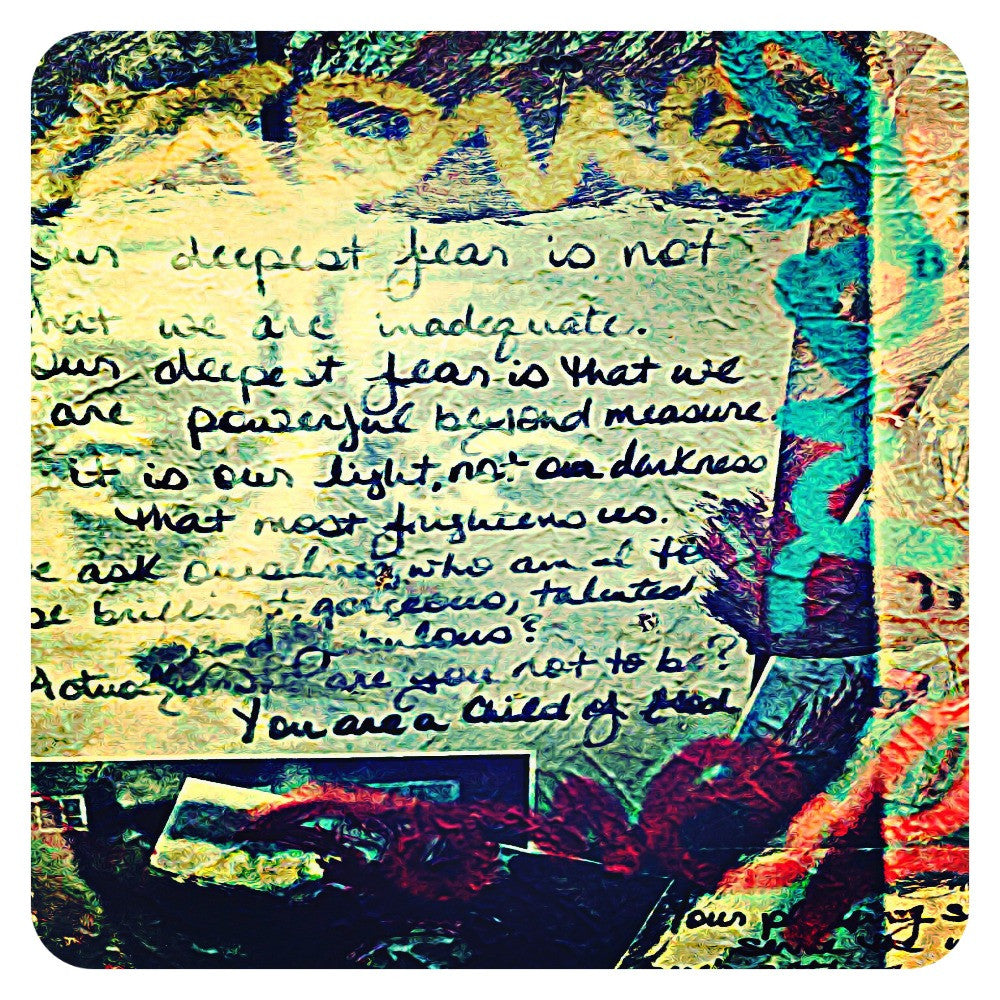 our deepest fear is not
that we are inadequate.
Our deepest fear is that we
are powerful beyond measure.
it is our light, not our darkness
that most frightens us.
ask ourselves, who am I to
be brilliant, gorgeous, talented
and fabulous?
Actually, are you not to be?
You are a Child of God
your playing s